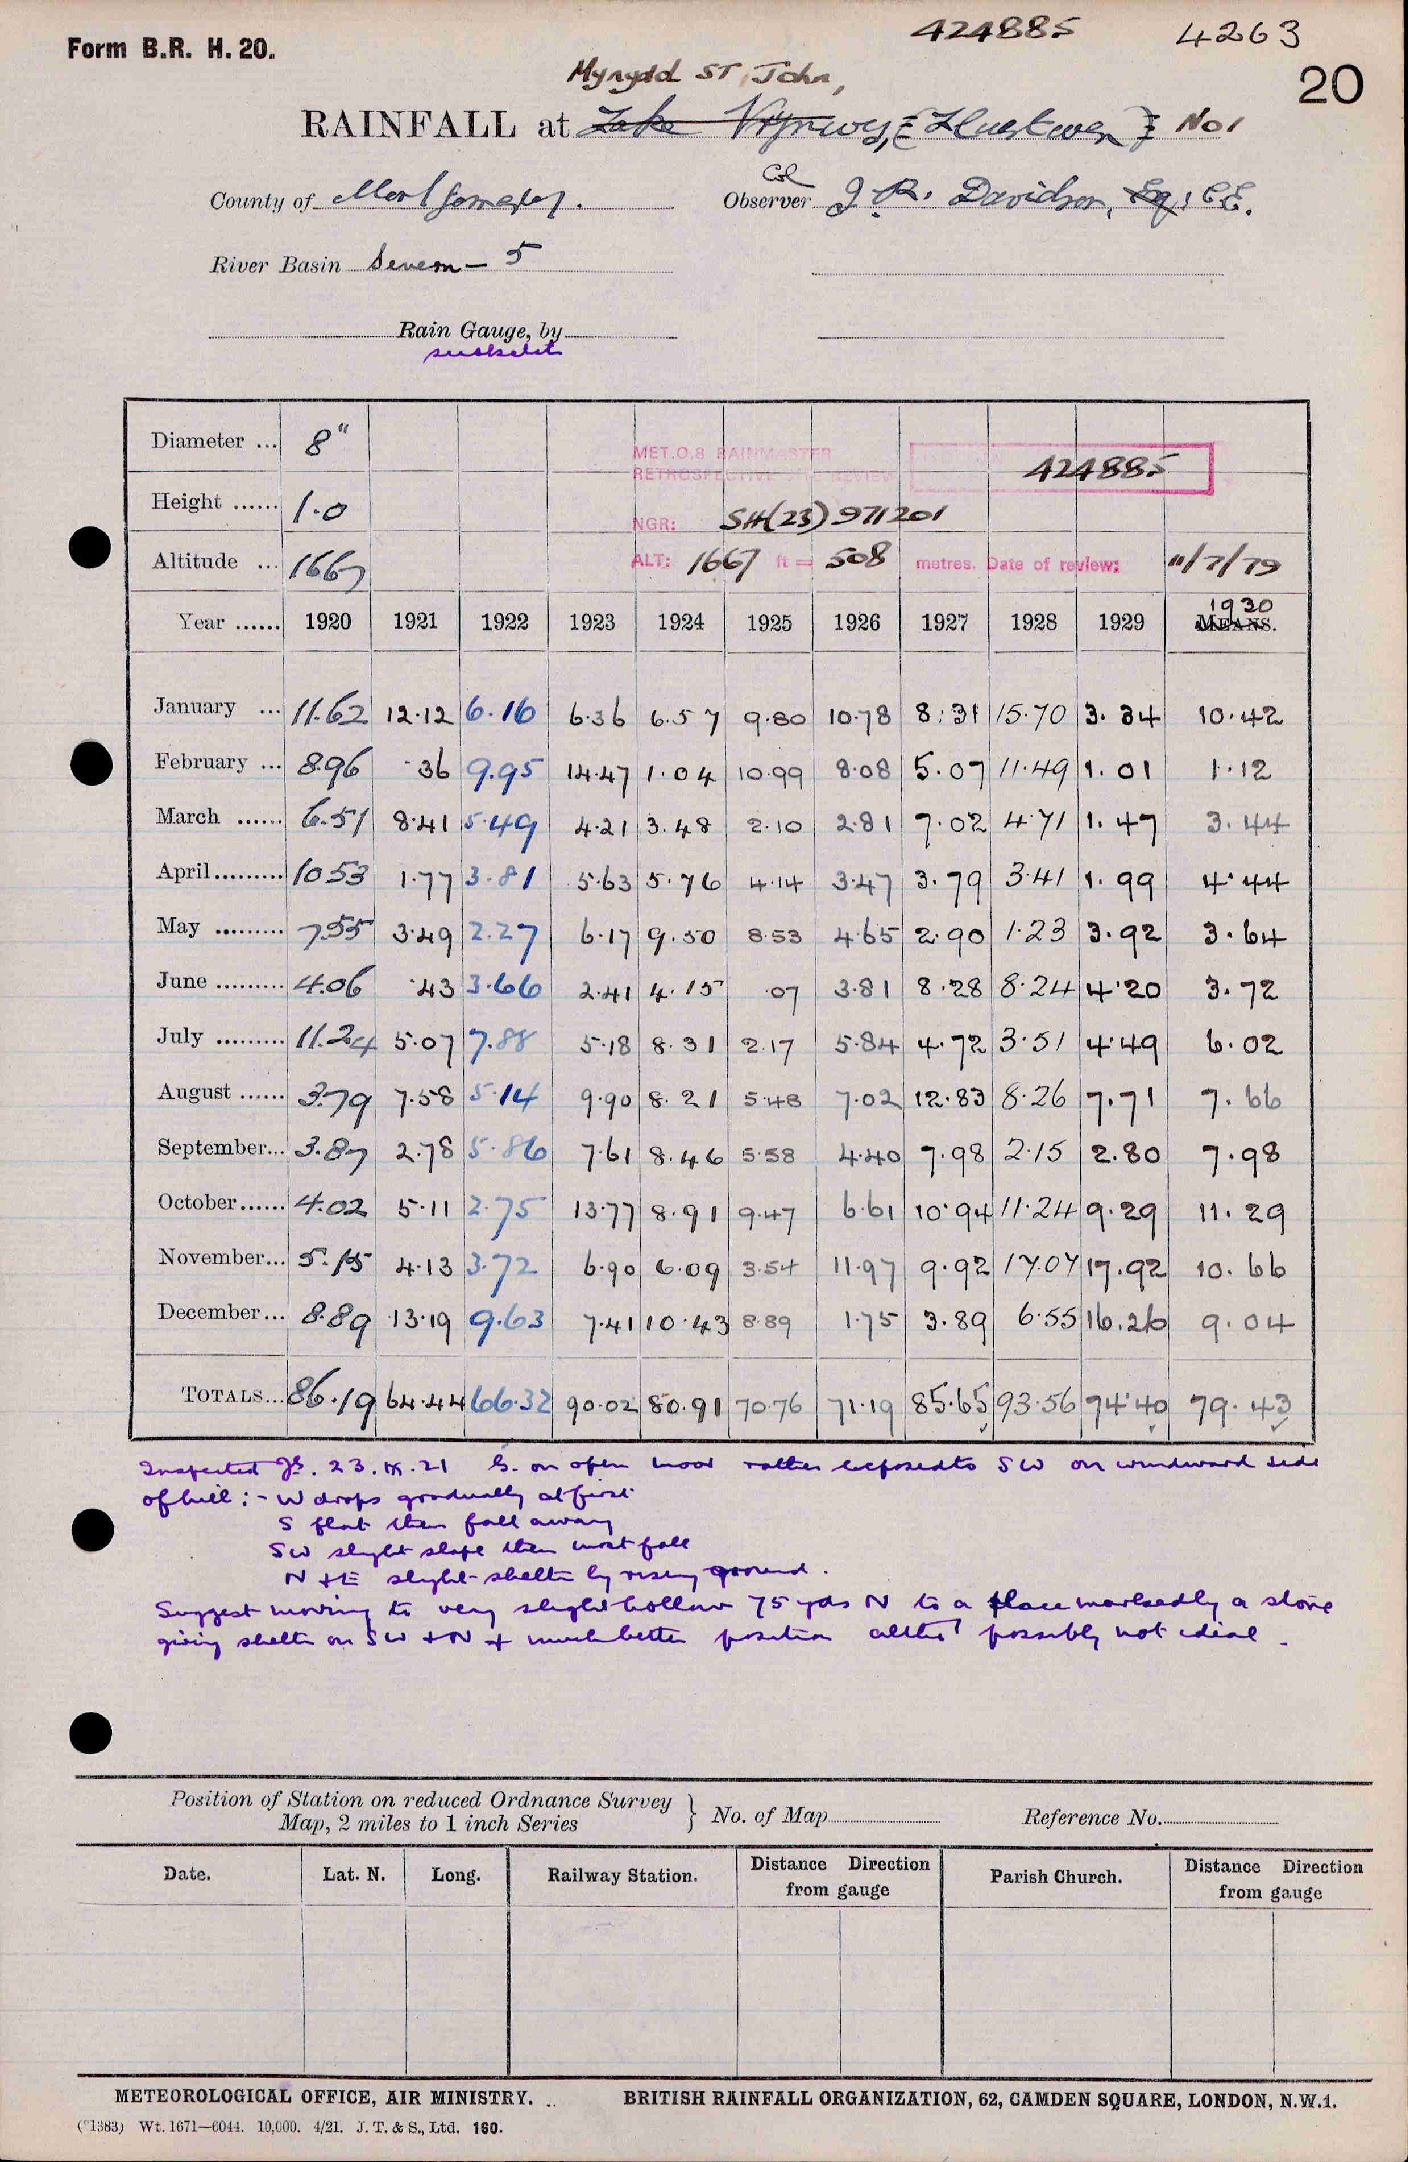 Form B.R. H. 20.
424885 4263
20
Mynydd ST John,
RAINFALL at Lake Vyrnwy, No 1
County of Montgomery.
Col
Observer J. R. Davidson, Esq, C.E.
River Basin Severn - 5
Rain Gauge, by
Diameter ... 8"
MET.O.8 RAINMASTER
RETROSPECTIVE SITE REVIEW
424885
Height ...... 1.0
NGR: SH(23) 971201
Altitude ... 1667
ALT: 1667 ft = 508 metres. Date of review: 11/7/79
1930
Year ...... 1920 1921 1922 1923 1924 1925 1926 1927 1928 1929 MEANS.
January ... 11.62 12.12 6.16 6.36 6.57 9.80 10.78 8.31 15.70 3.34 10.42
February ... 8.96 .36 9.95 14.47 1.04 10.99 8.08 5.07 11.49 1.01 1.12
March ...... 6.51 8.41 5.49 4.21 3.48 2.10 2.81 7.02 4.71 1.47 3.44
April......... 10.53 1.77 3.81 5.63 5.76 4.14 3.47 3.79 3.41 1.99 4.44
May ......... 7.55 3.49 2.27 6.17 9.50 8.53 4.65 2.90 1.23 3.92 3.64
June ......... 4.06 .43 3.66 2.41 4.15 .07 3.81 8.28 8.24 4.20 3.72
July ......... 11.24 5.07 7.88 5.18 8.31 2.17 5.84 4.72 3.51 4.49 6.02
August ...... 3.79 7.58 5.14 9.90 8.21 5.48 7.02 12.83 8.26 7.71 7.66
September... 3.87 2.78 5.86 7.61 8.46 5.58 4.40 7.98 2.15 2.80 7.98
October...... 4.02 5.11 2.75 13.77 8.91 9.47 6.61 10.94 11.24 9.29 11.29
November... 5.15 4.13 3.72 6.90 6.09 3.54 11.97 9.92 17.07 17.92 10.66
December... 8.89 13.19 9.63 7.41 10.43 8.89 1.75 3.89 6.55 16.26 9.04
TOTALS... 86.19 64.44 66.32 90.02 80.91 70.76 71.19 85.65 93.56 74.40 79.43
Inspected 23.IX.21 G. on open moor rather exposed to SW on windward side
of hill :- W drops gradually at first
S flat then fall away
SW slight slope then most fall
N + E slight shelter by rising ground.
Suggest moving to very slight hollow 75 yds N to a place marked by a stone
giving shelter on SW + N + much better position altho' possibly not ideal.
Position of Station on reduced Ordnance Survey
Map, 2 miles to 1 inch Series } No. of Map Reference No.
Date. Lat. N. Long. Railway Station. Distance Direction from gauge Parish Church. Distance Direction from gauge
METEOROLOGICAL OFFICE, AIR MINISTRY. BRITISH RAINFALL ORGANIZATION, 62, CAMDEN SQUARE, LONDON, N.W.1.
(*1383) Wt. 1671—6044. 10,000. 4/21. J. T. & S., Ltd. 160.